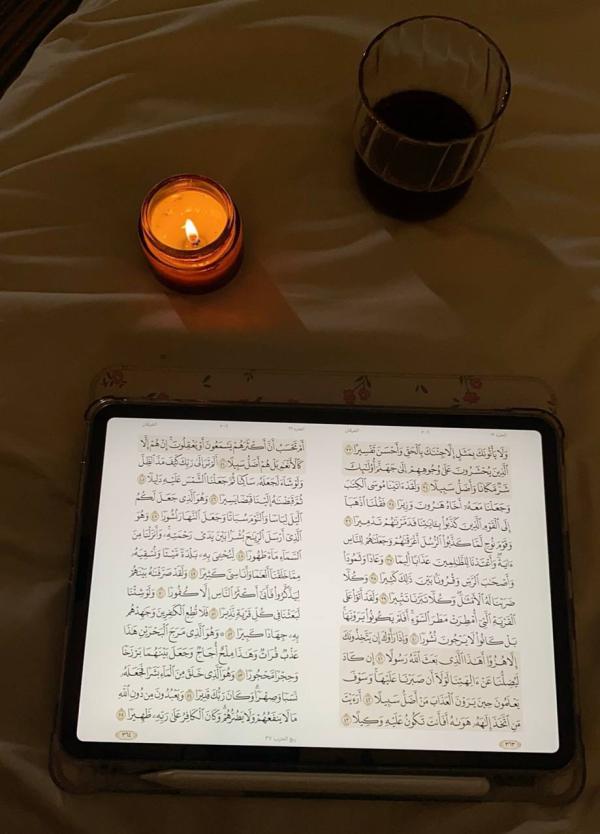 الجزء ١٩ الفرقان
وَلَا يَأْتُونَكَ بِمَثَلٍ إِلَّا جِئْنَٰكَ بِٱلْحَقِّ وَأَحْسَنَ تَفْسِيرًا ٣٣
ٱلَّذِينَ يُحْشَرُونَ عَلَىٰ وُجُوهِهِمْ إِلَىٰ جَهَنَّمَ أُو۟لَٰٓئِكَ
شَرٌّ مَّكَانًا وَأَضَلُّ سَبِيلًا ٣٤ وَلَقَدْ ءَاتَيْنَا مُوسَى ٱلْكِتَٰبَ
وَجَعَلْنَا مَعَهُۥٓ أَخَاهُ هَٰرُونَ وَزِيرًا ٣٥ فَقُلْنَا ٱذْهَبَآ
إِلَى ٱلْقَوْمِ ٱلَّذِينَ كَذَّبُوا۟ بِـَٔايَٰتِنَا فَدَمَّرْنَٰهُمْ تَدْمِيرًا ٣٦
وَقَوْمَ نُوحٍ لَّمَّا كَذَّبُوا۟ ٱلرُّسُلَ أَغْرَقْنَٰهُمْ وَجَعَلْنَٰهُمْ لِلنَّاسِ
ءَايَةً وَأَعْتَدْنَا لِلظَّٰلِمِينَ عَذَابًا أَلِيمًا ٣٧ وَعَادًا وَثَمُودَا۟
وَأَصْحَٰبَ ٱلرَّسِّ وَقُرُونًۢا بَيْنَ ذَٰلِكَ كَثِيرًا ٣٨ وَكُلًّا
ضَرَبْنَا لَهُ ٱلْأَمْثَٰلَ وَكُلًّا تَبَّرْنَا تَتْبِيرًا ٣٩ وَلَقَدْ أَتَوْا۟ عَلَى
ٱلْقَرْيَةِ ٱلَّتِىٓ أُمْطِرَتْ مَطَرَ ٱلسَّوْءِ أَفَلَمْ يَكُونُوا۟ يَرَوْنَهَا
بَلْ كَانُوا۟ لَا يَرْجُونَ نُشُورًا ٤٠ وَإِذَا رَأَوْكَ إِن يَتَّخِذُونَكَ
إِلَّا هُزُوًا أَهَٰذَا ٱلَّذِى بَعَثَ ٱللَّهُ رَسُولًا ٤١ إِن كَادَ
لَيُضِلُّنَا عَنْ ءَالِهَتِنَا لَوْلَآ أَن صَبَرْنَا عَلَيْهَا وَسَوْفَ
يَعْلَمُونَ حِينَ يَرَوْنَ ٱلْعَذَابَ مَنْ أَضَلُّ سَبِيلًا ٤٢ أَرَءَيْتَ
مَنِ ٱتَّخَذَ إِلَٰهَهُۥ هَوَىٰهُ أَفَأَنتَ تَكُونُ عَلَيْهِ وَكِيلًا ٤٣
٣٦٣
الجزء ١٩ الفرقان
أَمْ تَحْسَبُ أَنَّ أَكْثَرَهُمْ يَسْمَعُونَ أَوْ يَعْقِلُونَ إِنْ هُمْ إِلَّا
كَٱلْأَنْعَٰمِ بَلْ هُمْ أَضَلُّ سَبِيلًا ٤٤ أَلَمْ تَرَ إِلَىٰ رَبِّكَ كَيْفَ مَدَّ ٱلظِّلَّ
وَلَوْ شَآءَ لَجَعَلَهُۥ سَاكِنًا ثُمَّ جَعَلْنَا ٱلشَّمْسَ عَلَيْهِ دَلِيلًا ٤٥
ثُمَّ قَبَضْنَٰهُ إِلَيْنَا قَبْضًا يَسِيرًا ٤٦ وَهُوَ ٱلَّذِى جَعَلَ لَكُمُ
ٱلَّيْلَ لِبَاسًا وَٱلنَّوْمَ سُبَاتًا وَجَعَلَ ٱلنَّهَارَ نُشُورًا ٤٧ وَهُوَ
ٱلَّذِىٓ أَرْسَلَ ٱلرِّيَٰحَ بُشْرًۢا بَيْنَ يَدَىْ رَحْمَتِهِۦ وَأَنزَلْنَا مِنَ
ٱلسَّمَآءِ مَآءً طَهُورًا ٤٨ لِّنُحْـِۧىَ بِهِۦ بَلْدَةً مَّيْتًا وَنُسْقِيَهُۥ
مِمَّا خَلَقْنَآ أَنْعَٰمًا وَأَنَاسِىَّ كَثِيرًا ٤٩ وَلَقَدْ صَرَّفْنَٰهُ بَيْنَهُمْ
لِيَذَّكَّرُوا۟ فَأَبَىٰٓ أَكْثَرُ ٱلنَّاسِ إِلَّا كُفُورًا ٥٠ وَلَوْ شِئْنَا
لَبَعَثْنَا فِى كُلِّ قَرْيَةٍ نَّذِيرًا ٥١ فَلَا تُطِعِ ٱلْكَٰفِرِينَ وَجَٰهِدْهُم
بِهِۦ جِهَادًا كَبِيرًا ٥٢ وَهُوَ ٱلَّذِى مَرَجَ ٱلْبَحْرَيْنِ هَٰذَا
عَذْبٌ فُرَاتٌ وَهَٰذَا مِلْحٌ أُجَاجٌ وَجَعَلَ بَيْنَهُمَا بَرْزَخًا
وَحِجْرًا مَّحْجُورًا ٥٣ وَهُوَ ٱلَّذِى خَلَقَ مِنَ ٱلْمَآءِ بَشَرًا فَجَعَلَهُۥ
نَسَبًا وَصِهْرًا وَكَانَ رَبُّكَ قَدِيرًا ٥٤ وَيَعْبُدُونَ مِن دُونِ ٱللَّهِ
مَا لَا يَنفَعُهُمْ وَلَا يَضُرُّهُمْ وَكَانَ ٱلْكَافِرُ عَلَىٰ رَبِّهِۦ ظَهِيرًا ٥٥
ربع الحزب ٣٧
٣٦٤